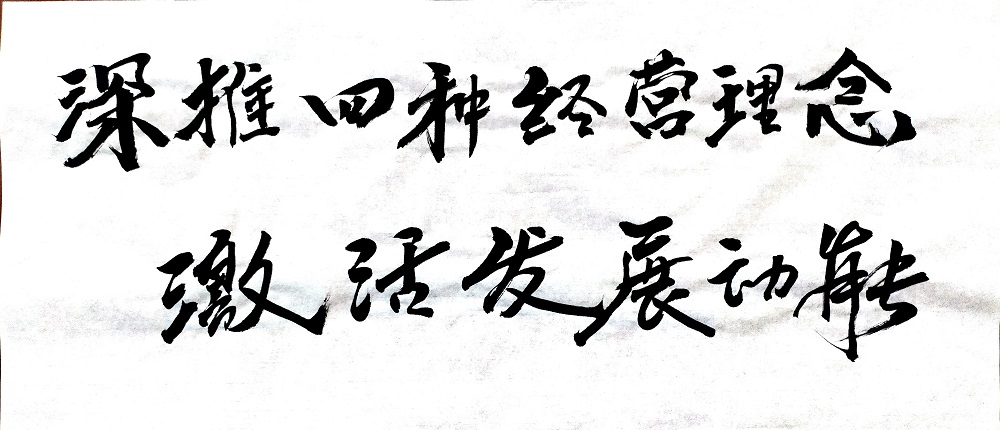 深推四种经营理念
激活发展动能